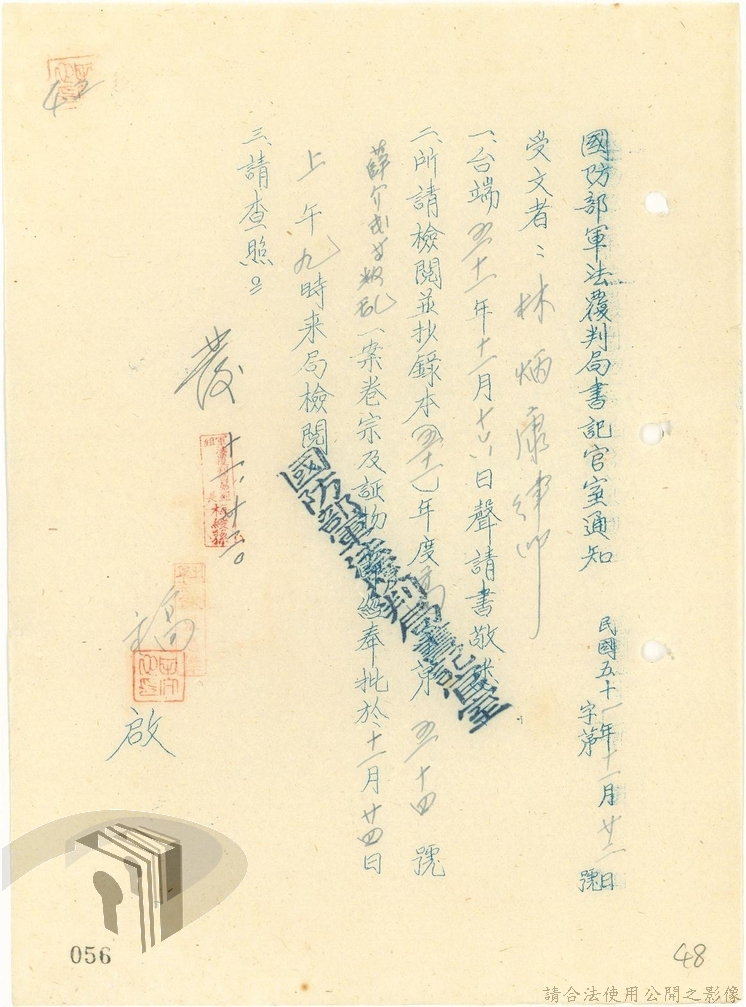 國防部軍法覆判局書記官室通知
民國五十一年十一月廿三日
字第 號
受文者：林炳康律師
一、台端五十一年十一月十六日聲請書敬悉
二、所請檢閱並抄錄本(五十一)年度 第五十四號
一案卷宗及証物 經奉批於十一月廿四日
上午九時來局檢閱
三、請查照。
國防部軍法覆判局書記官室
發
啟
056
48
請合法使用公開之影像